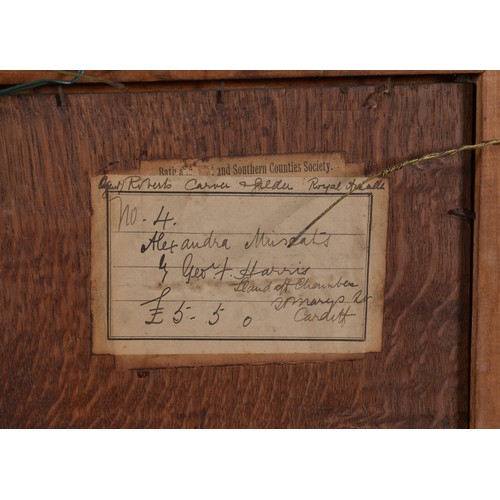 Bath and West and Southern Counties Society.
Agent Roberts Carver & Gilder Royal Arcade
No. 4.
Alexandra Muscats
by Geo. F. Harris
Llandaff Chambers
St Marys St
Cardiff
£ 5 - 5 0